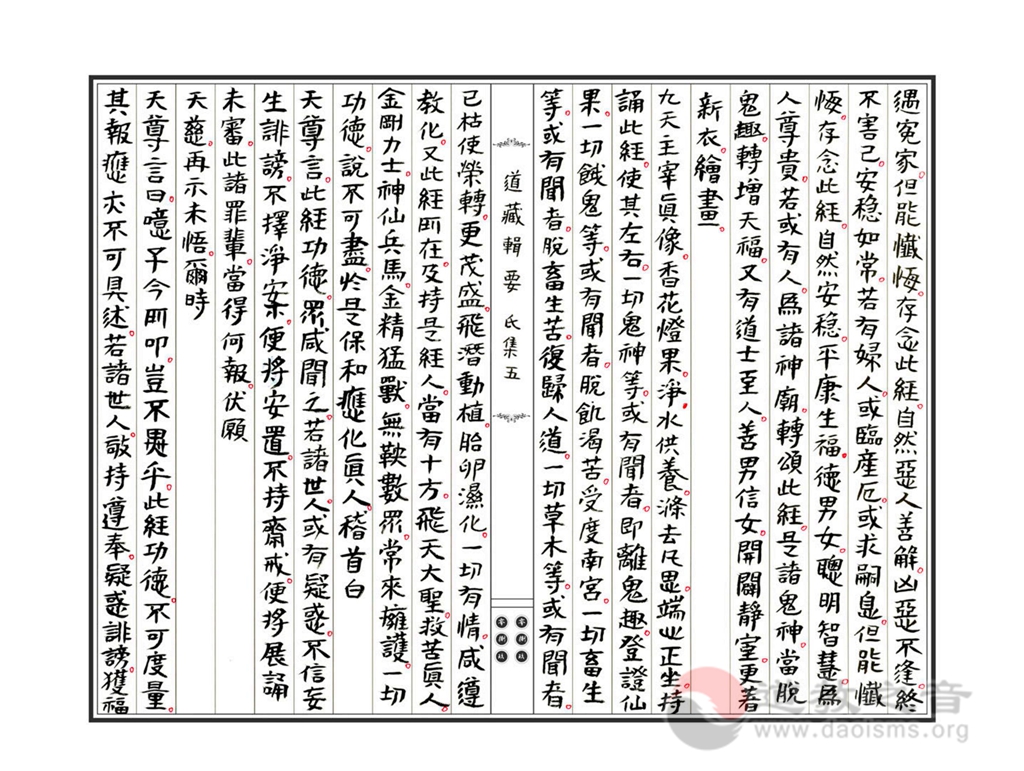 遇冤家但能懺悔存念此經自然惡人善解凶惡不逢終
不害己安穏如常若有婦人或臨產厄或求嗣息但能懺
悔存念此經自然安穏平康生福德男女聰明智慧爲
人尊貴若或有人爲諸神廟轉頌此經是諸鬼神當脫
鬼趣轉增天福又有道士至人善男信女開闢靜室更着
新衣繪畫
九天主宰眞像香花燈果淨水供養滌去凡思端心正坐持
誦此經使其左右一切鬼神等或有聞者即離鬼趣登證仙
果一切餓鬼等或有聞者脫飢渴苦受度南宮一切畜生
等或有聞者脫畜生苦復歸人道一切草木等或有聞者
道藏輯要 氐集五
已枯使榮轉更茂盛飛潛動植胎卵濕化一切有情咸遵
教化又此經所在及持是經人當有十方飛天大聖救苦眞人
金剛力士神仙兵馬金精猛獸無鞅數眾常來擁護一切
功德說不可盡於是保和應化眞人稽首白
天尊言此經功德眾咸聞之若諸世人或有疑惑不信妄
生誹謗不擇淨案便將安置不持齋戒便將展誦
未審此諸罪輩當得何報伏願
天慈再示未悟爾時
天尊言曰噫子今所叩豈不異乎此經功德不可度量
其報應亦不可具述若諸世人敬持遵奉疑惑誹謗獲福
道教之音
www.daoisms.org